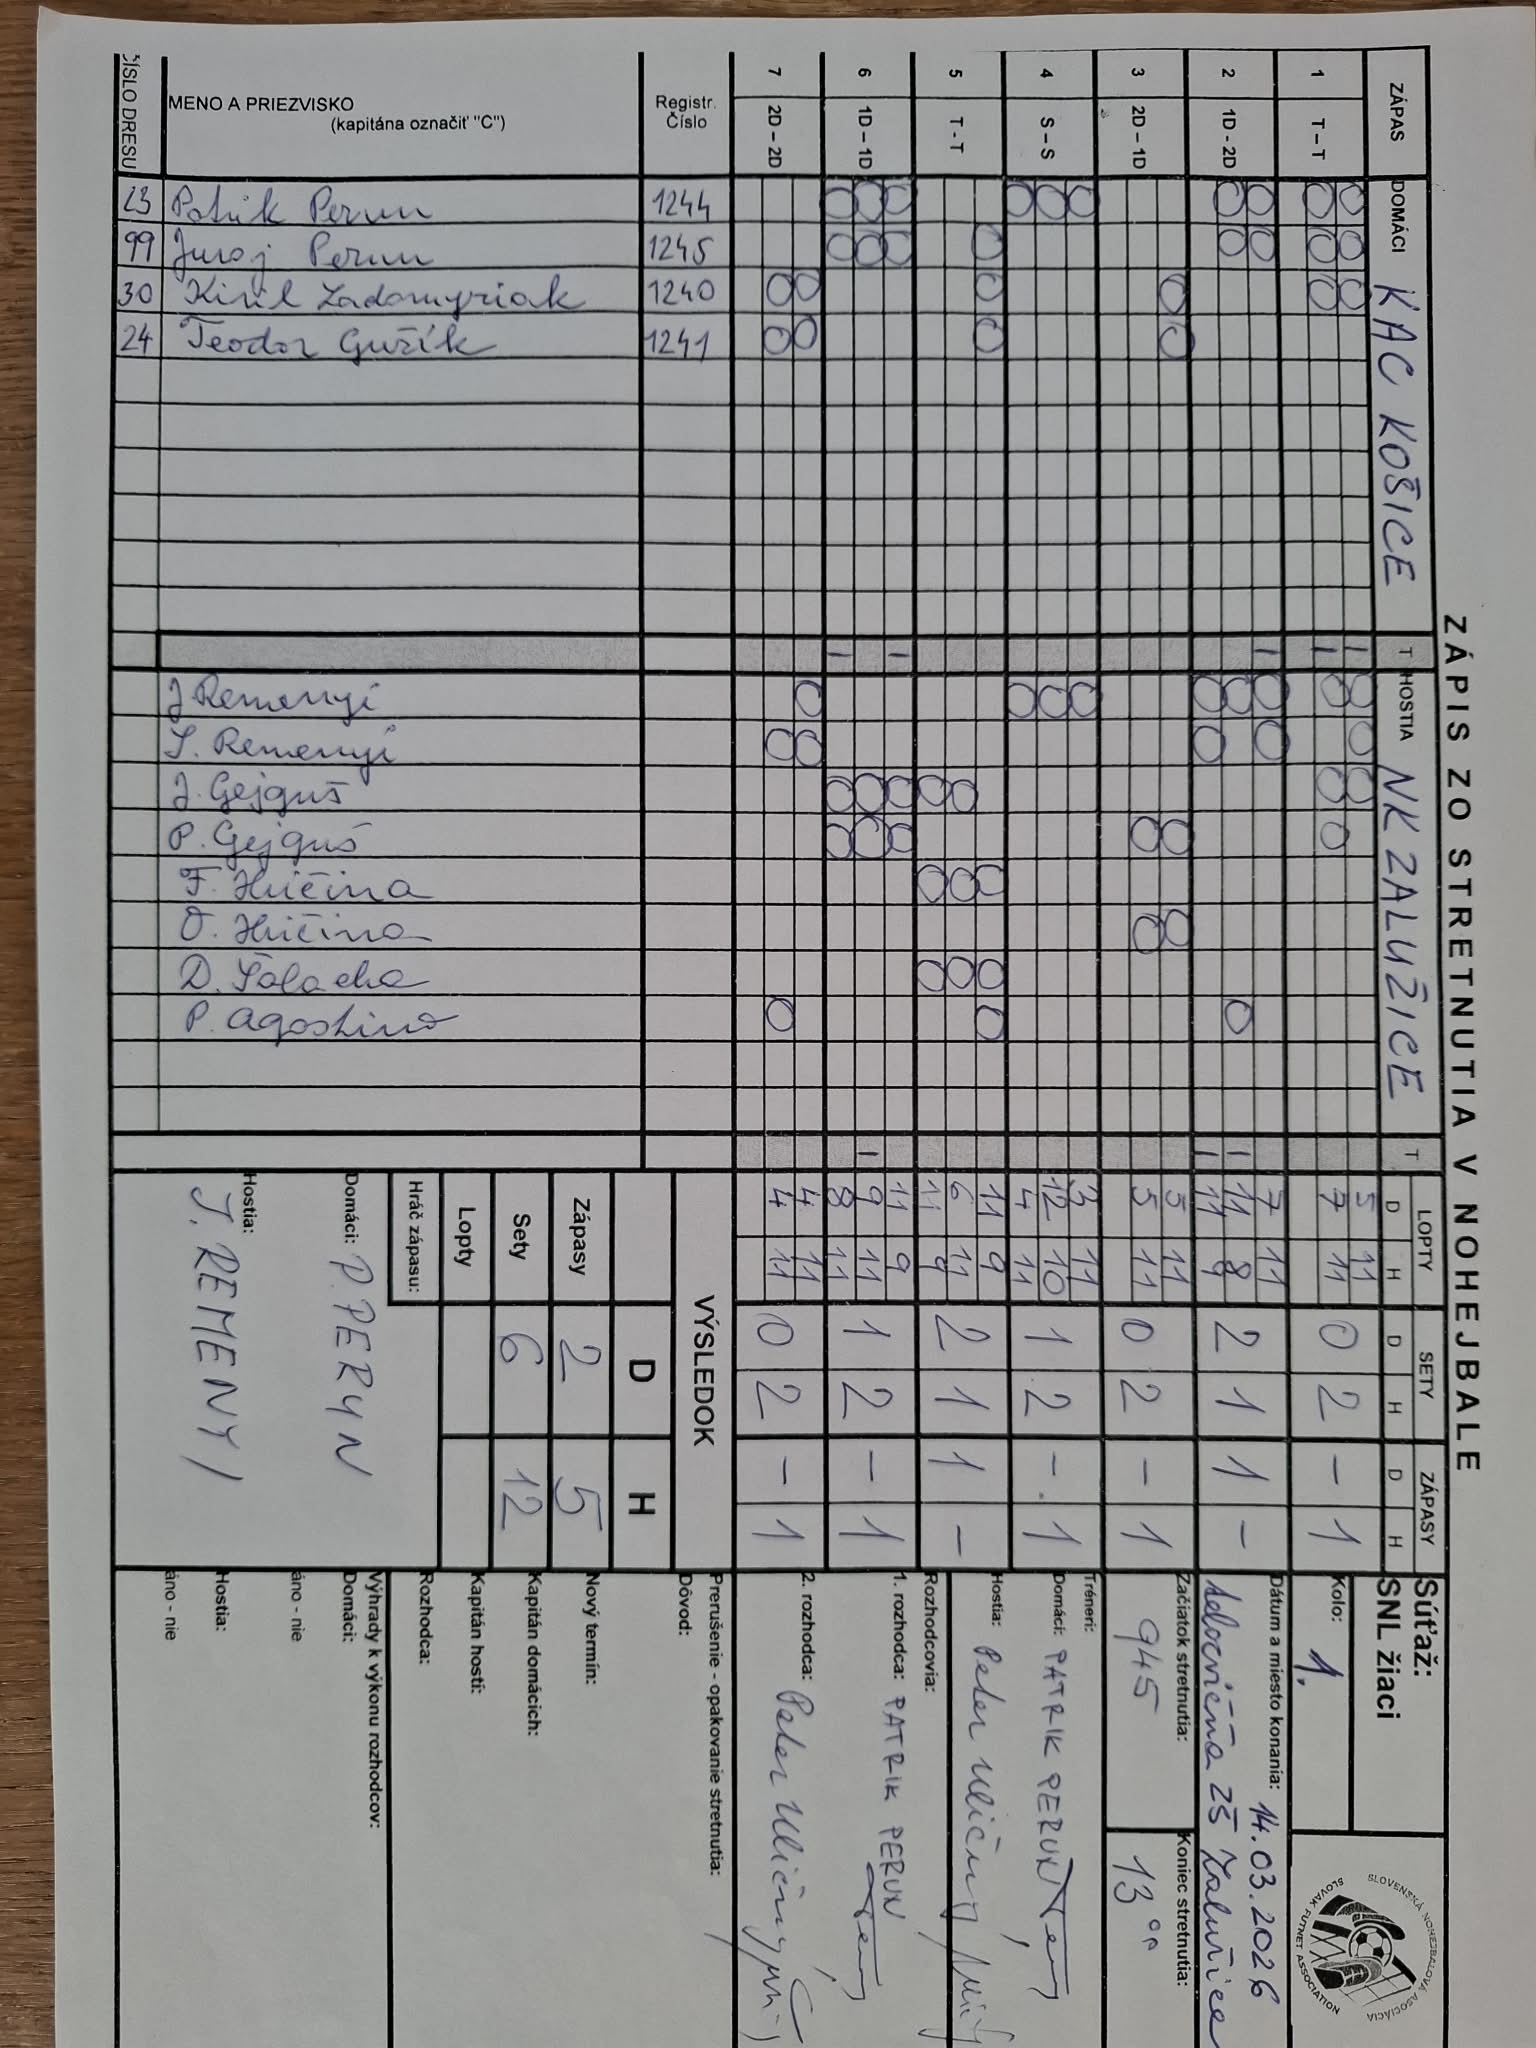 ZÁPIS ZO STRETNUTIA V NOHEJBALE
ZÁPAS DOMÁCI KAC KOŠICE T HOSTIA NK ZALUŽICE T LOPTY SETY ZÁPASY
D H D H D H
1 T – T 5 11 0 2 – 1
7 11
2 1D - 2D 7 11 2 1 1 –
11 8
11 9
3 2D – 1D 5 11 0 2 – 1
5 11
4 S – S 3 11 1 2 – 1
12 10
4 11
5 T - T 11 9 2 1 1 –
6 11
11 9
6 1D – 1D 11 9 1 2 – 1
9 11
8 11
7 2D – 2D 4 11 0 2 – 1
4 11
ČÍSLO DRESU MENO A PRIEZVISKO (kapitána označiť "C") Registr. Číslo
23 Patrik Perun 1244
99 Juraj Perun 1245
30 Kiril Zadomyriak 1240
24 Teodor Gužík 1241
J Remenyi
S. Remenyi
J. Gejguš
P. Gejguš
F. Hričina
O. Hričina
D. Šalacha
P. Agostino
VÝSLEDOK
D H
Zápasy 2 5
Sety 6 12
Lopty
Hráč zápasu:
Domáci: P. PERUN
Hostia: J. REMENYI
Súťaž:
SNL žiaci
Kolo: 1.
Dátum a miesto konania: 14.03.2026
Telocvičňa ZŠ Zalužice
Začiatok stretnutia: 945
Koniec stretnutia: 13 00
Tréneri:
Domáci: PATRIK PERUN
Hostia: Peter Uličný
Rozhodcovia:
1. rozhodca: PATRIK PERUN
2. rozhodca: Peter Uličný
Prerušenie - opakovanie stretnutia:
Dôvod:
Nový termín:
Kapitán domácich:
Kapitán hostí:
Rozhodca:
Výhrady k výkonu rozhodcov:
Domáci:
áno - nie
Hostia:
áno - nie
SLOVENSKÁ NOHEJBALOVÁ ASOCIÁCIA
SLOVAK FUTNET ASSOCIATION